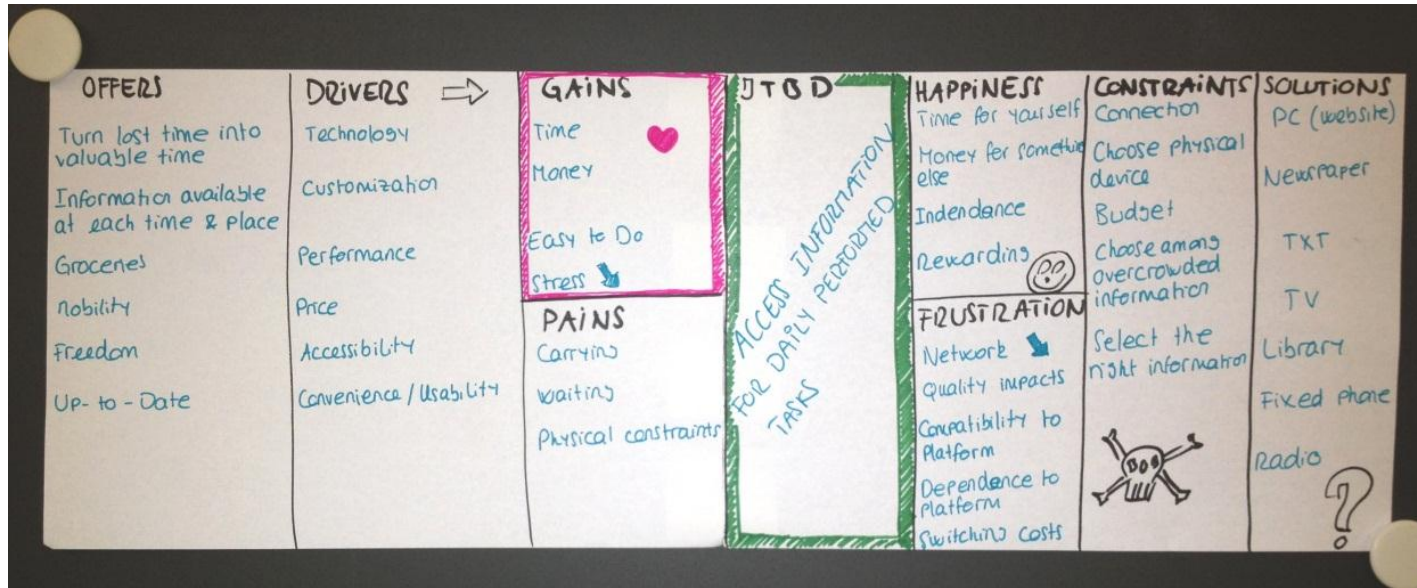 OFFERS
Turn lost time into
valuable time
Information available
at each time & place
Groceries
Mobility
Freedom
Up-to-Date
DRIVERS
Technology
Customization
Performance
Price
Accessibility
Convenience / Usability
GAINS
Time
Money
Easy to Do
Stress
PAINS
Carrying
Waiting
Physical constraints
JTBD
ACCESS INFORMATION
FOR DAILY PERFORMED
TASKS
HAPPINESS
Time for yourself
Money for somethin
else
Indendance
Rewarding
FRUSTRATION
Network
Quality impacts
Compatibility to
Platform
Dependance to
Platform
Switching costs
CONSTRAINTS
Connection
Choose physical
device
Budget
Choose among
overcrowded
information
Select the
right information
SOLUTIONS
PC (website)
Newspaper
TXT
TV
Library
Fixed phone
Radio
?